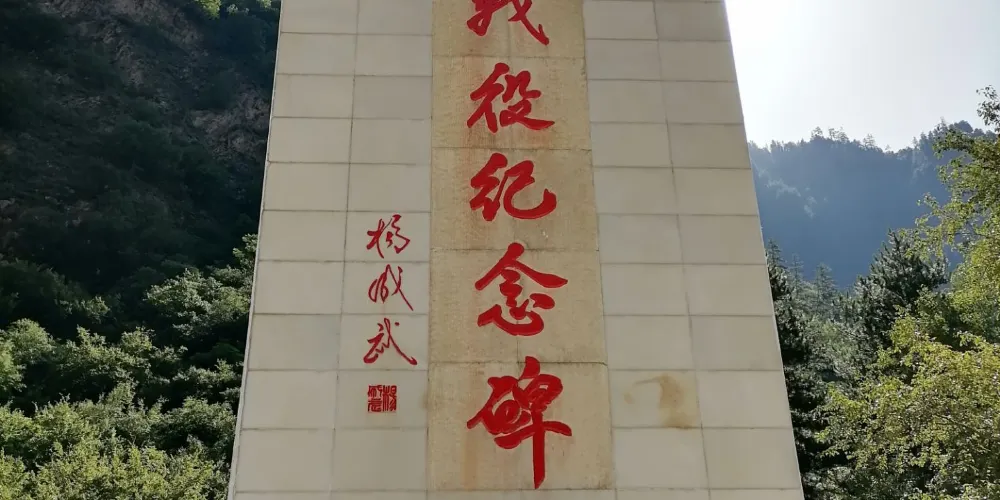 战役纪念碑
杨成武